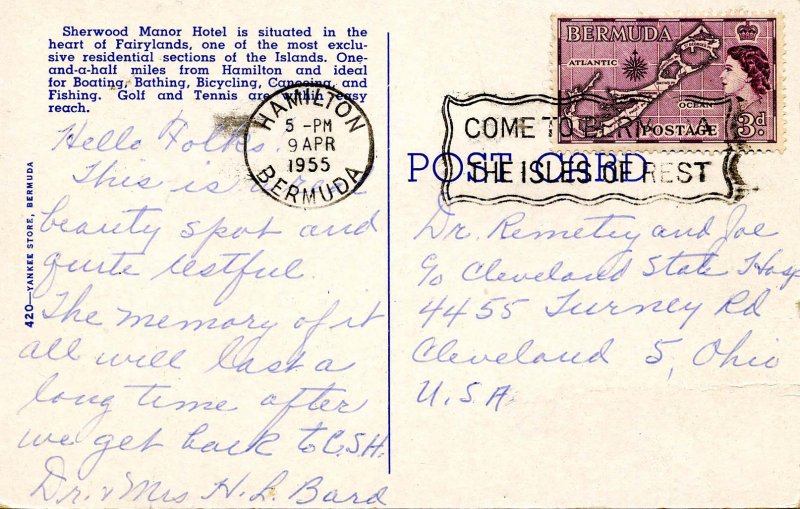 Sherwood Manor Hotel is situated in the
heart of Fairylands, one of the most exclu-
sive residential sections of the Islands. One-
and-a-half miles from Hamilton and ideal
for Boating, Bathing, Bicycling, Canoeing, and
Fishing. Golf and Tennis are within easy
reach.
420—YANKEE STORE, BERMUDA
HAMILTON
5 -PM
9 APR
1955
BERMUDA
BERMUDA
ATLANTIC
OCEAN
POSTAGE
3d.
COME TO BERMUDA
THE ISLES OF REST
POST CARD
Hello Folks.
This is a real
beauty spot and
quite restful.
The memory of it
all will last a
long time after
we get back to C.S.H.
Dr. & Mrs H. L. Bard
Dr. Remetey and Joe
c/o Cleveland State Hosp
4455 Turney Rd
Cleveland 5, Ohio
U.S.A.